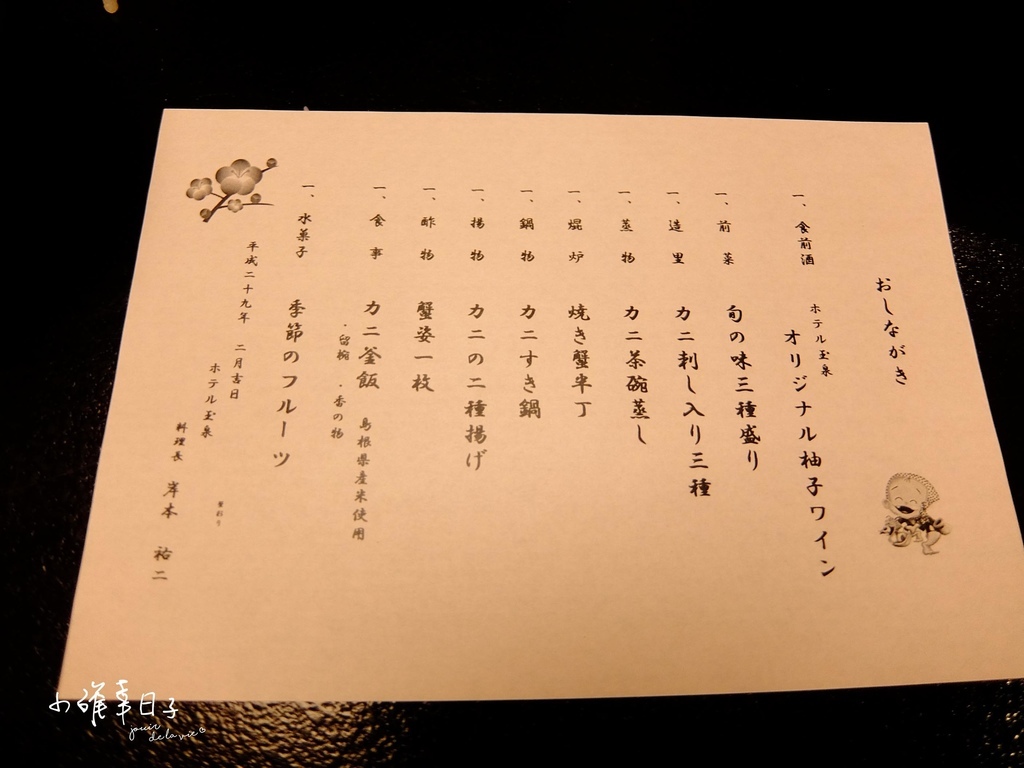 おしながき
一、食前酒 ホテル玉泉
オリジナル柚子ワイン
一、前菜 旬の味三種盛り
一、造里 カニ刺し入り三種
一、蒸物 カニ茶碗蒸し
一、焜炉 焼き蟹半丁
一、鍋物 カニすき鍋
一、揚物 カニの二種揚げ
一、酢物 蟹姿一枚
一、食事 カニ釜飯 島根県産米使用
・留椀 ・香の物
一、水菓子 季節のフルーツ
平成二十九年 二月吉日
ホテル玉泉
料理長 岸本 祐二
小雅幸日子
jouir
de la vie